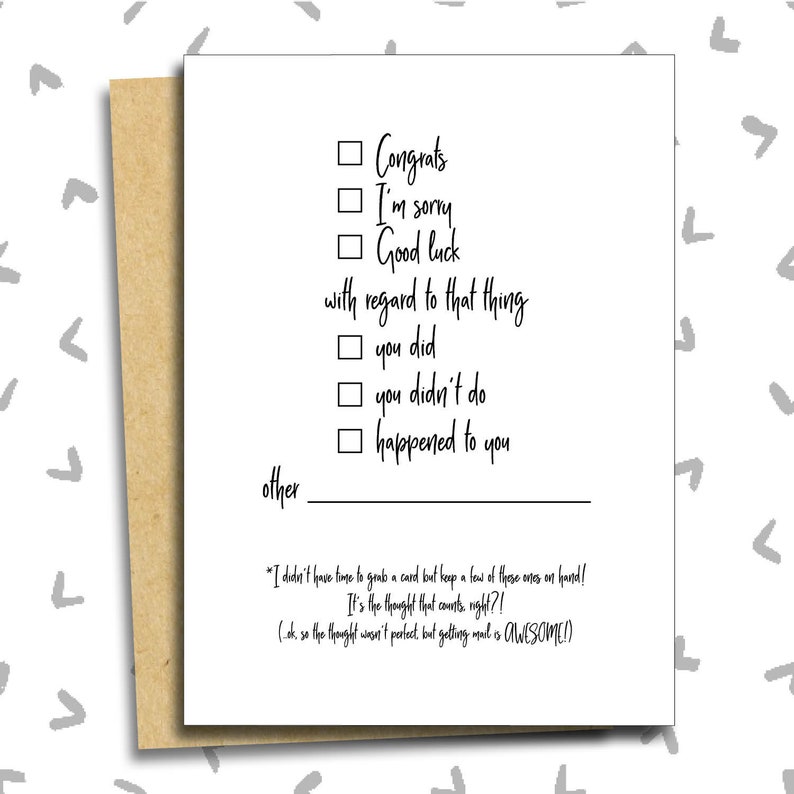 Congrats
I'm sorry
Good luck
with regard to that thing
you did
you didn't do
happened to you
other
*I didn't have time to grab a card but keep a few of these ones on hand!
It's the thought that counts, right?!
(...ok, so the thought wasn't perfect, but getting mail is AWESOME!)